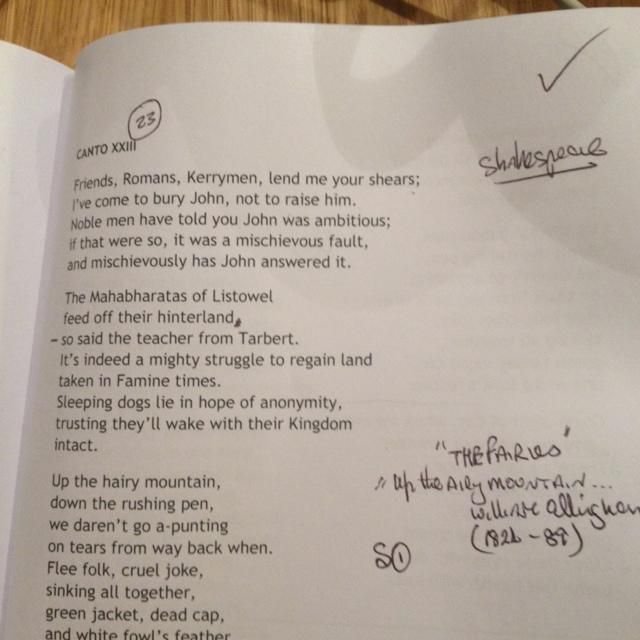 23
CANTO XXIII
Shakespeare
Friends, Romans, Kerrymen, lend me your shears;
I've come to bury John, not to raise him.
Noble men have told you John was ambitious;
if that were so, it was a mischievous fault,
and mischievously has John answered it.
The Mahabharatas of Listowel
feed off their hinterland,
- so said the teacher from Tarbert.
It's indeed a mighty struggle to regain land
taken in Famine times.
Sleeping dogs lie in hope of anonymity,
trusting they'll wake with their Kingdom
intact.
"THE FAIRIES"
" Up the AIRY MOUNTAIN...
William Allingham
(1824-89)
Up the hairy mountain,
down the rushing pen,
we daren't go a-punting
on tears from way back when.
Flee folk, cruel joke,
sinking all together,
green jacket, dead cap,
and white fowl's feather